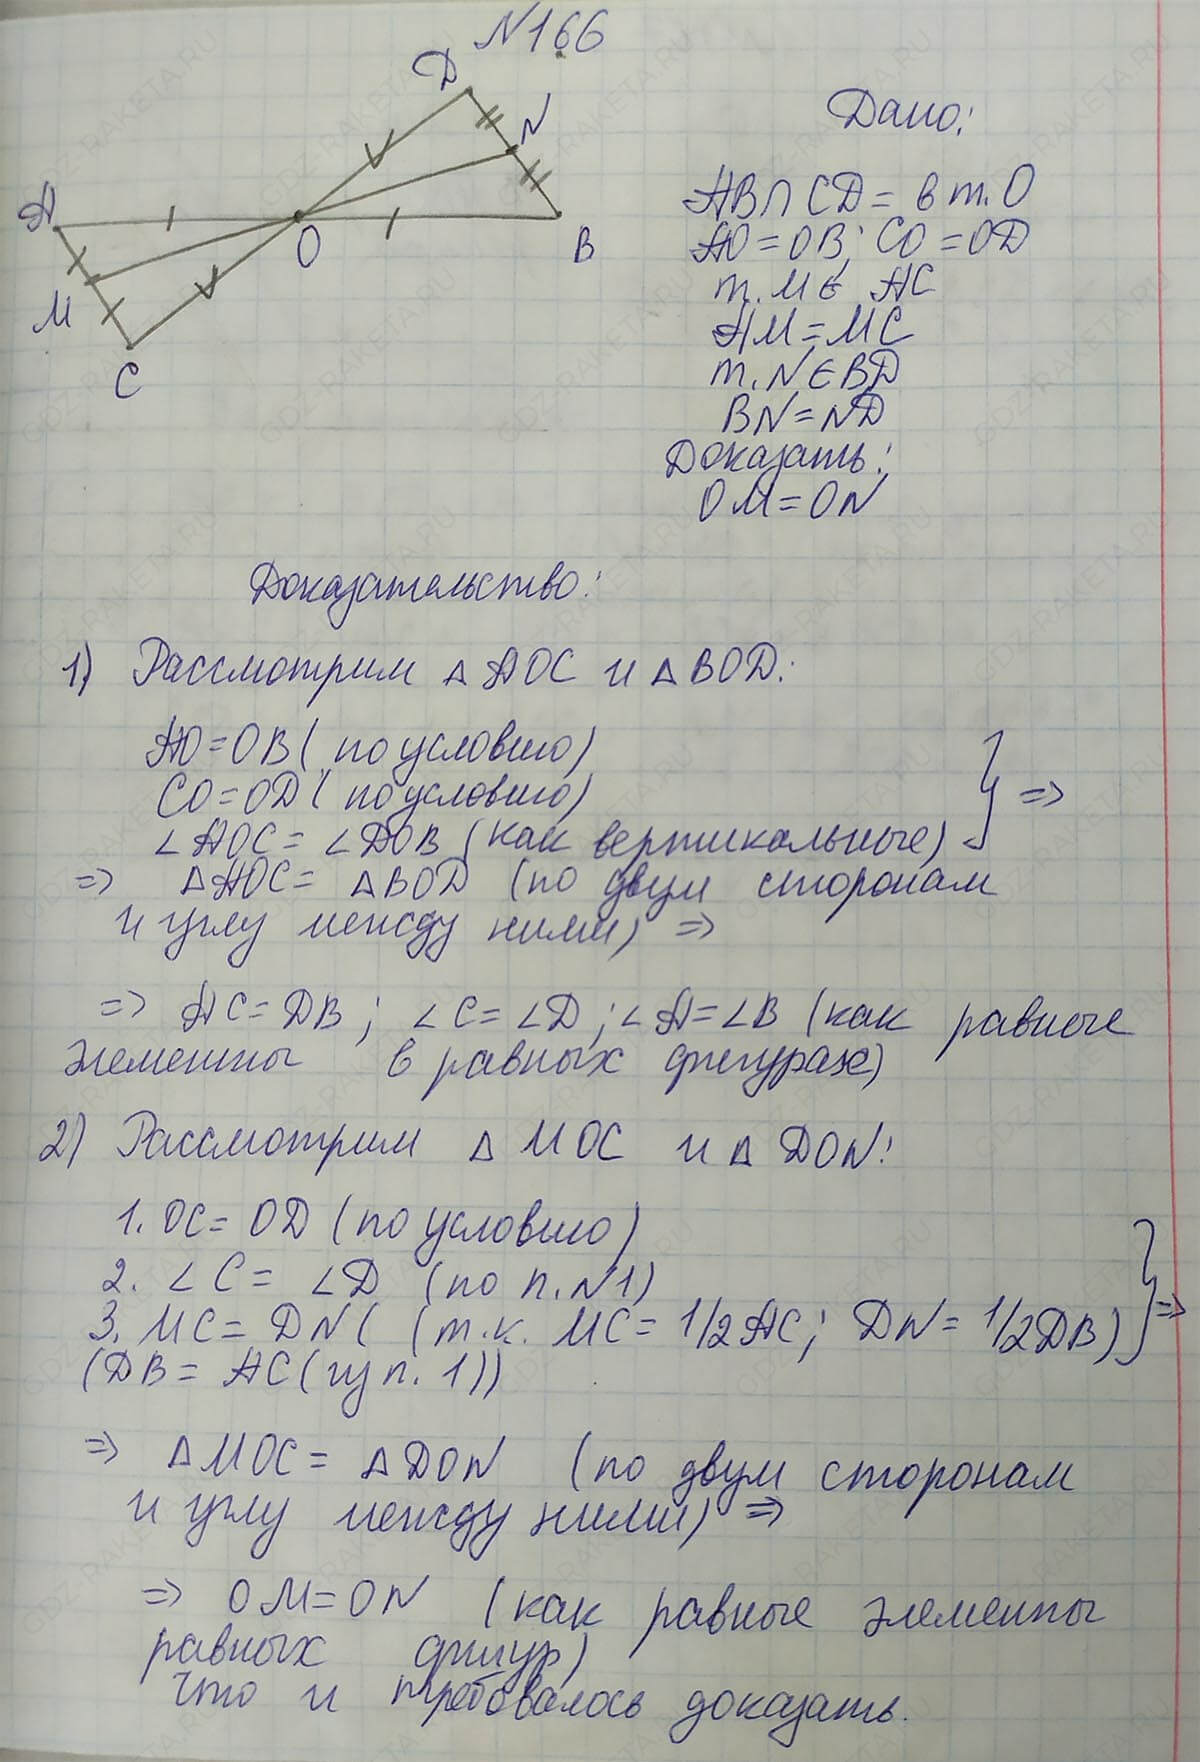 N166
D
N
A
O
B
M
C
Дано:
AB∩CD = в т. O
AO = OB; CO = OD
т. M ∈ AC
AM = MC
т. N ∈ BD
BN = ND
Доказать:
OM = ON
Доказательство:
1) Рассмотрим △ AOC и △ BOD:
AO = OB ( по условию)
CO = OD ( по условию)
∠AOC = ∠DOB (как вертикальные) } =>
=> △AOC = △BOD (по двум сторонам
и углу между ними) =>
=> AC = DB ; ∠C = ∠D ; ∠A = ∠B (как равные
элементы в равных фигурах)
2) Рассмотрим △ MOC и △ DON:
1. OC = OD (по условию)
2. ∠C = ∠D (по п. N1)
3. MC = DN ( (т.к. MC = 1/2AC; DN = 1/2DB) } =>
(DB = AC (из п. 1))
=> △MOC = △DON (по двум сторонам
и углу между ними) =>
=> OM = ON (как равные элементы
равных фигур)
Что и требовалось доказать.
GDZ-RAKETA.RU